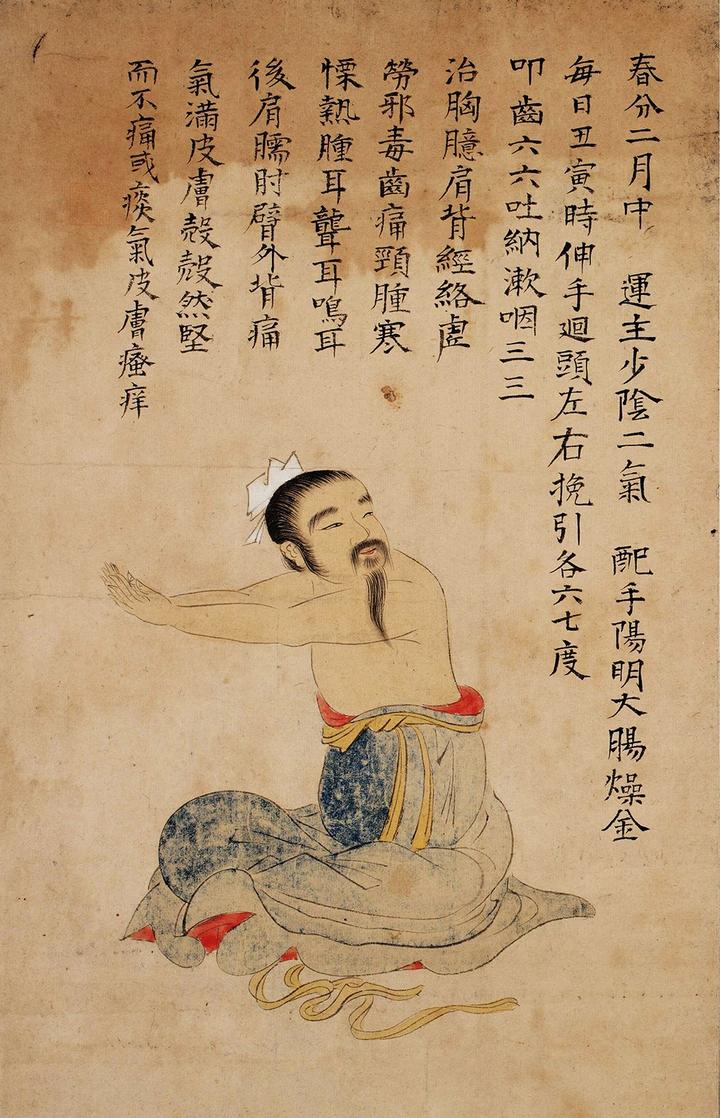 春分二月中 運主少陰二氣 配手陽明大腸燥金
每日丑寅時伸手迴頭左右挽引各六七度
叩齒六六吐納漱咽三三
治胸臆肩背經絡虛
勞邪毒齒痛頸腫寒
慄熱腫耳聾耳鳴耳
後肩臑肘臂外背痛
氣滿皮膚殻殻然堅
而不痛或痰氣皮膚瘙痒